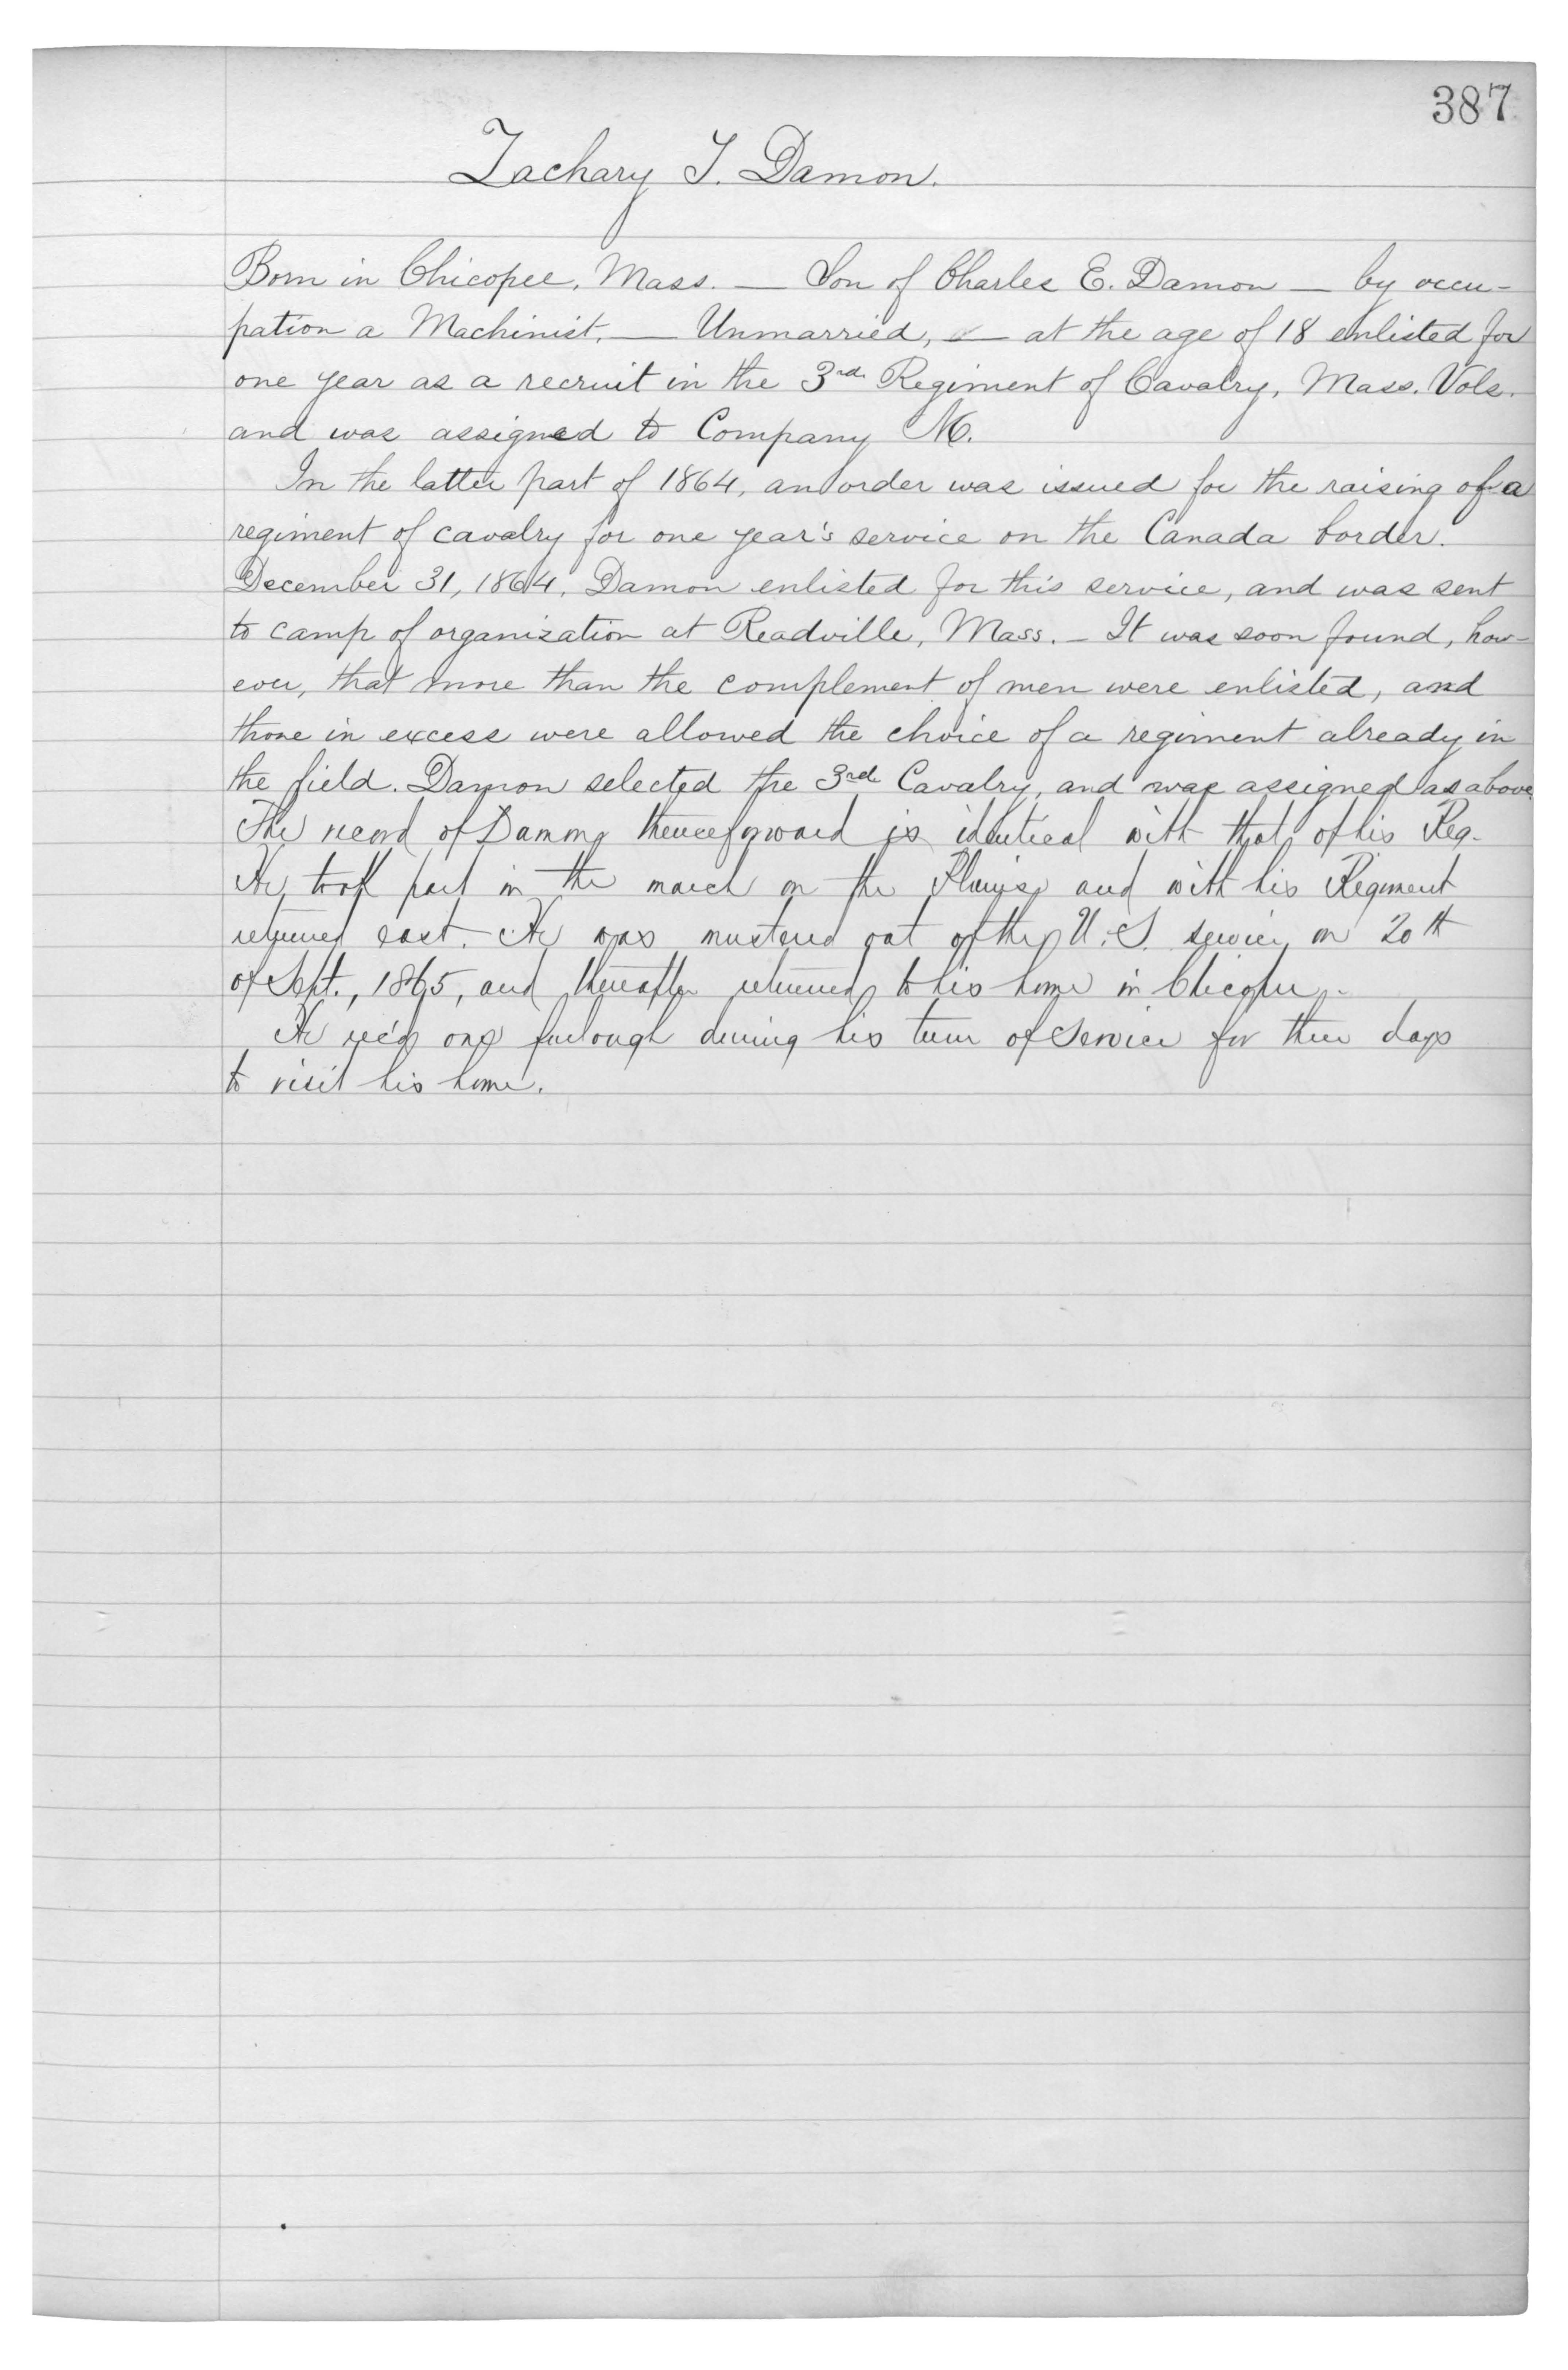 387
Zachary T. Damon.
Born in Chicopee, Mass. — Son of Charles E. Damon — by occu-
pation a Machinist, — Unmarried, — at the age of 18 enlisted for
one year as a recruit in the 3rd Regiment of Cavalry, Mass. Vols.
and was assigned to Company M.
In the latter part of 1864, an order was issued for the raising of a
regiment of cavalry for one year's service on the Canada border.
December 31, 1864, Damon enlisted for this service, and was sent
to camp of organization at Readville, Mass. — It was soon found, how-
ever, that more than the complement of men were enlisted, and
those in excess were allowed the choice of a regiment already in
the field. Damon selected the 3rd Cavalry, and was assigned as above.
The record of Damon thenceforward is identical with that of his Reg.
He took part in the march on the Plains and with his Regiment
returned east. — He was mustered out of the U.S. service on 20th
of Sept., 1865, and thereafter returned to his home in Chicopee. —
He rec'd one furlough during his term of service for three days
to visit his home.